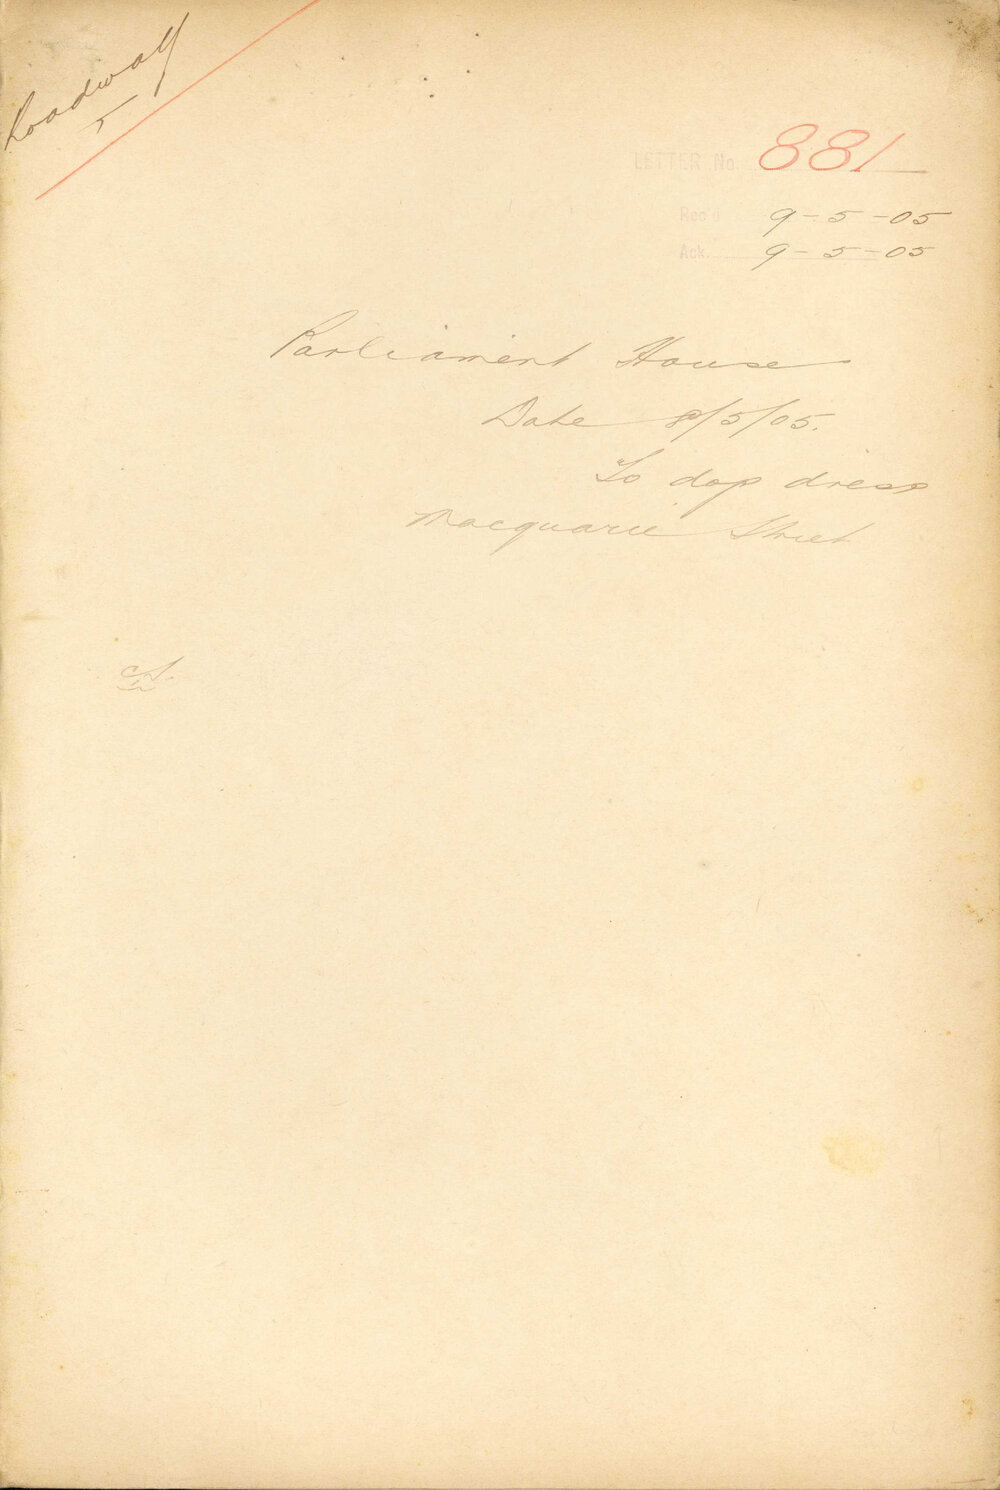 Roadway
5
LETTER No. 881
Rec'd 9-5-05
Ack. 9-5-05
Parliament House
Date 8/5/05.
To dop dress
Macquarie Street